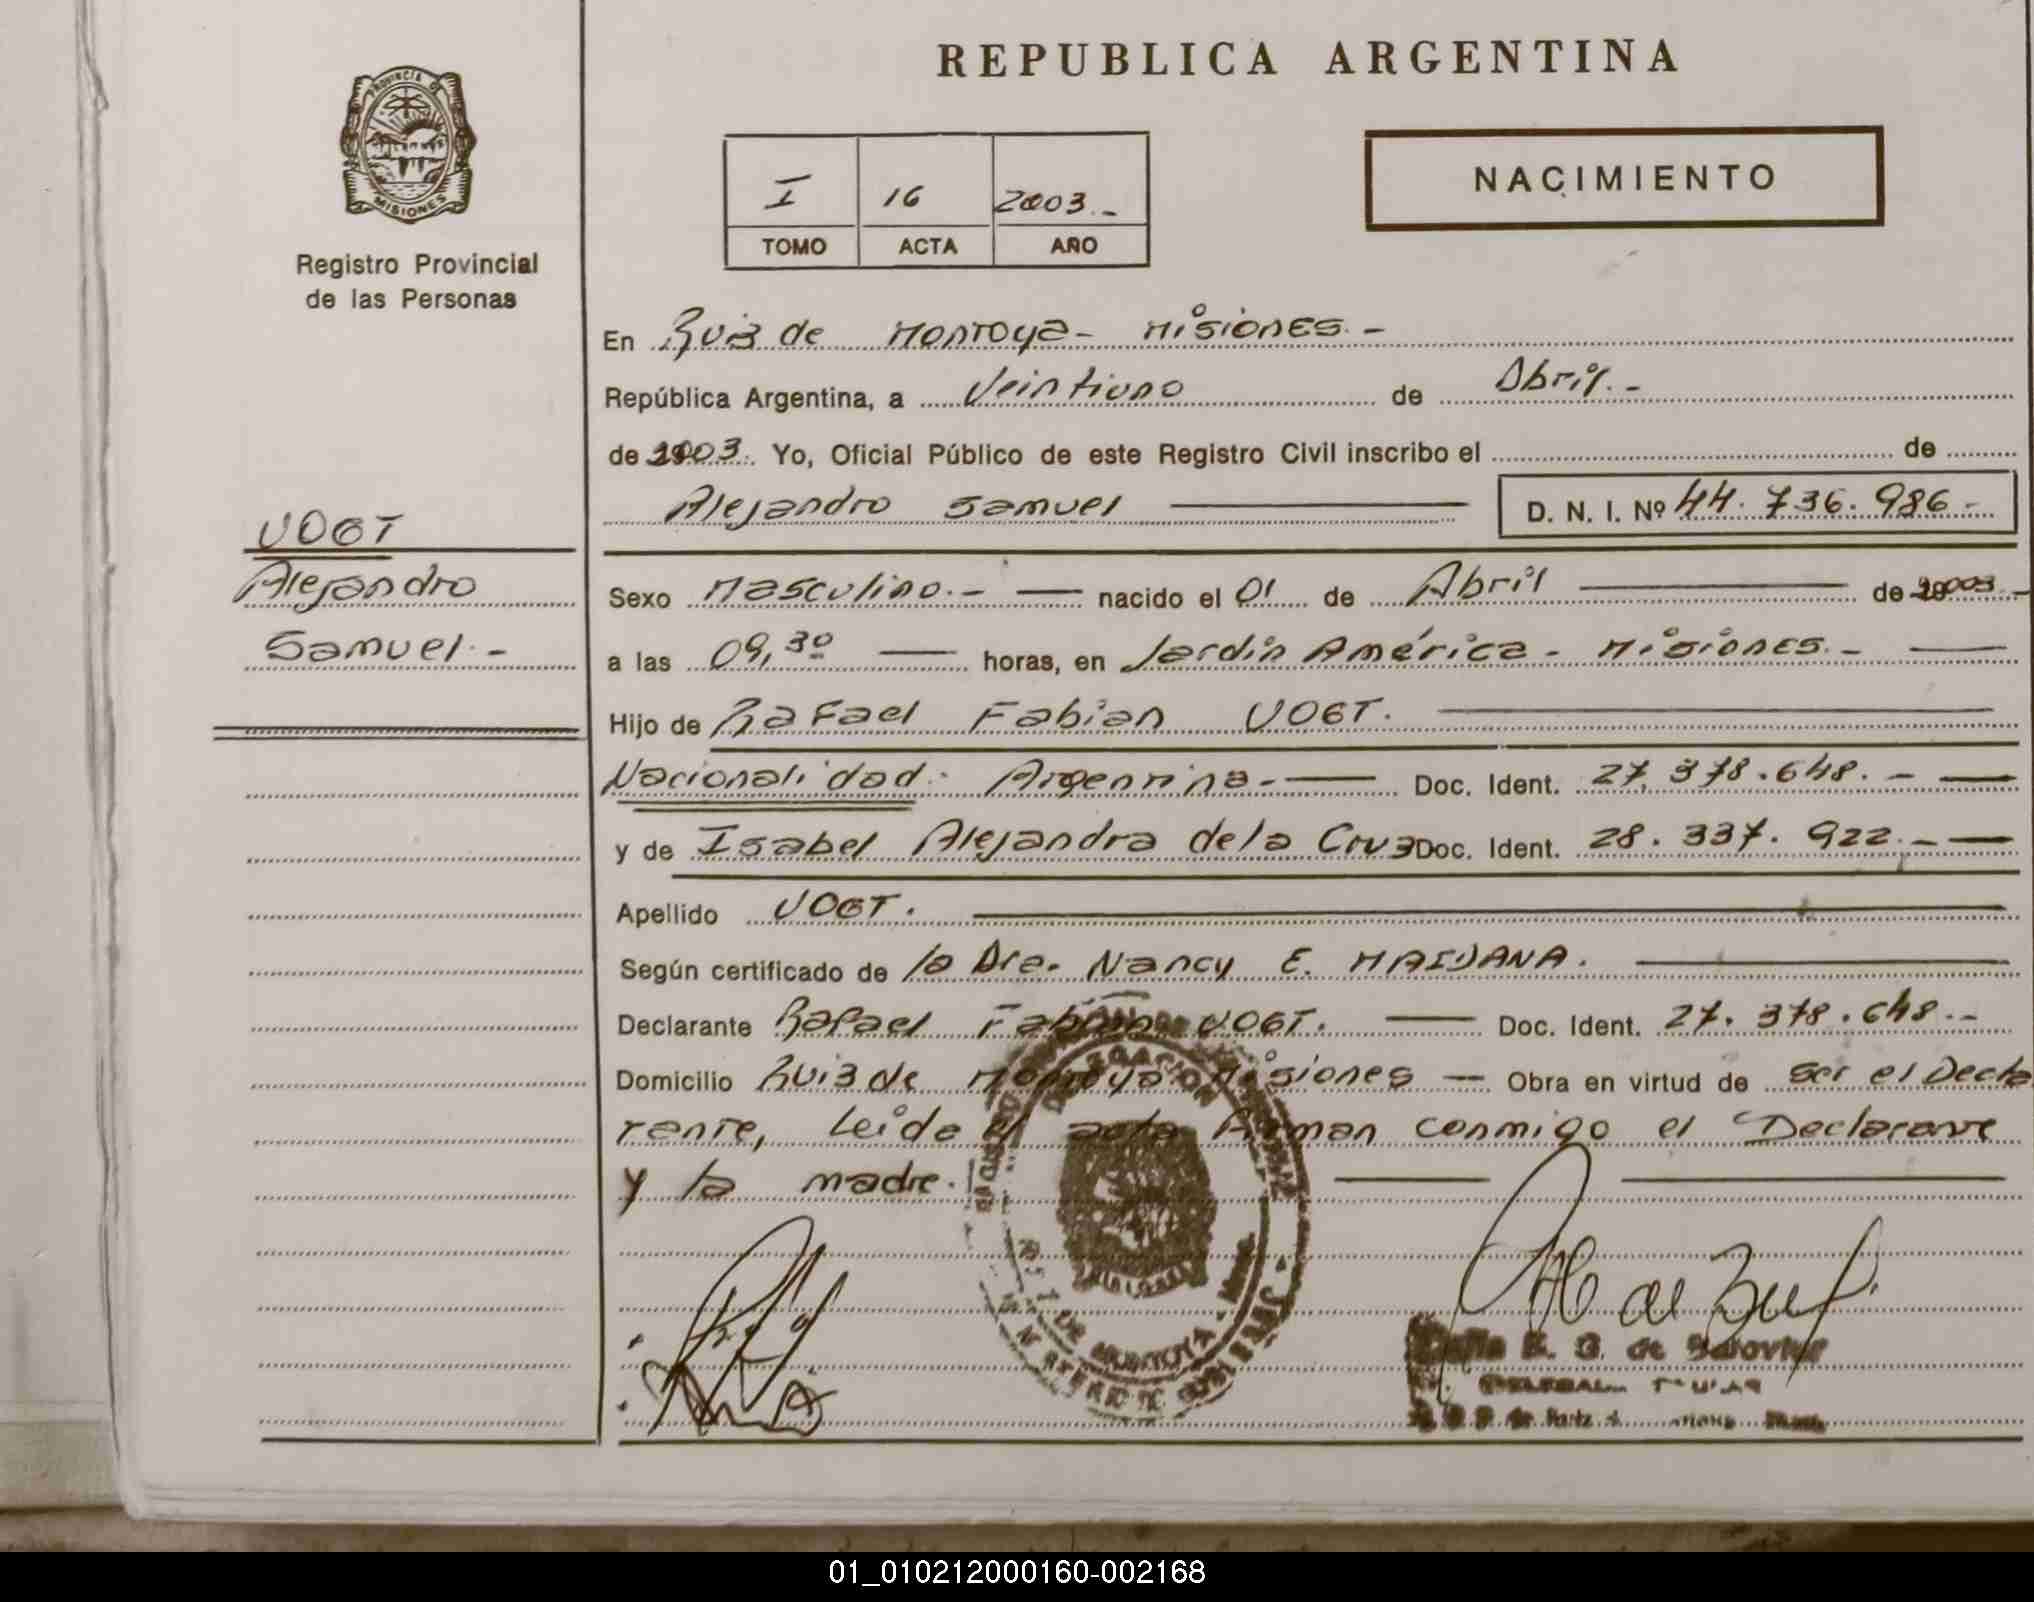 REPUBLICA ARGENTINA
PROVINCIA DE
MISIONES
Registro Provincial
de las Personas
I 16 2003.-
TOMO ACTA AÑO
NACIMIENTO
En Ruiz de Montoya - Misiones.-
República Argentina, a Veintiuno de Abril.-
de 2003. Yo, Oficial Público de este Registro Civil inscribo el de
Alejandro Samuel D. N. I. Nº 44.736.986-
VOGT
Alejandro
Samuel.-
Sexo Masculino.- nacido el 01 de Abril de 2003.-
a las 09,30 horas, en Jardín América - Misiones.-
Hijo de Rafael Fabian VOGT.
Nacionalidad: Argentina.- Doc. Ident. 27.378.648.-
y de Isabel Alejandra de la Cruz Doc. Ident. 28.337.922.-
Apellido VOGT.
Según certificado de la Dra. Nancy E. MAIDANA.
Declarante Rafael Fabian VOGT. Doc. Ident. 27.378.648.-
Domicilio Ruiz de Montoya Misiones Obra en virtud de ser el Decla
rante, Leida el acta Firman conmigo el Declarante
y la madre.
DELEGACION
DE MONTOYA
E. G. de
01_010212000160-002168